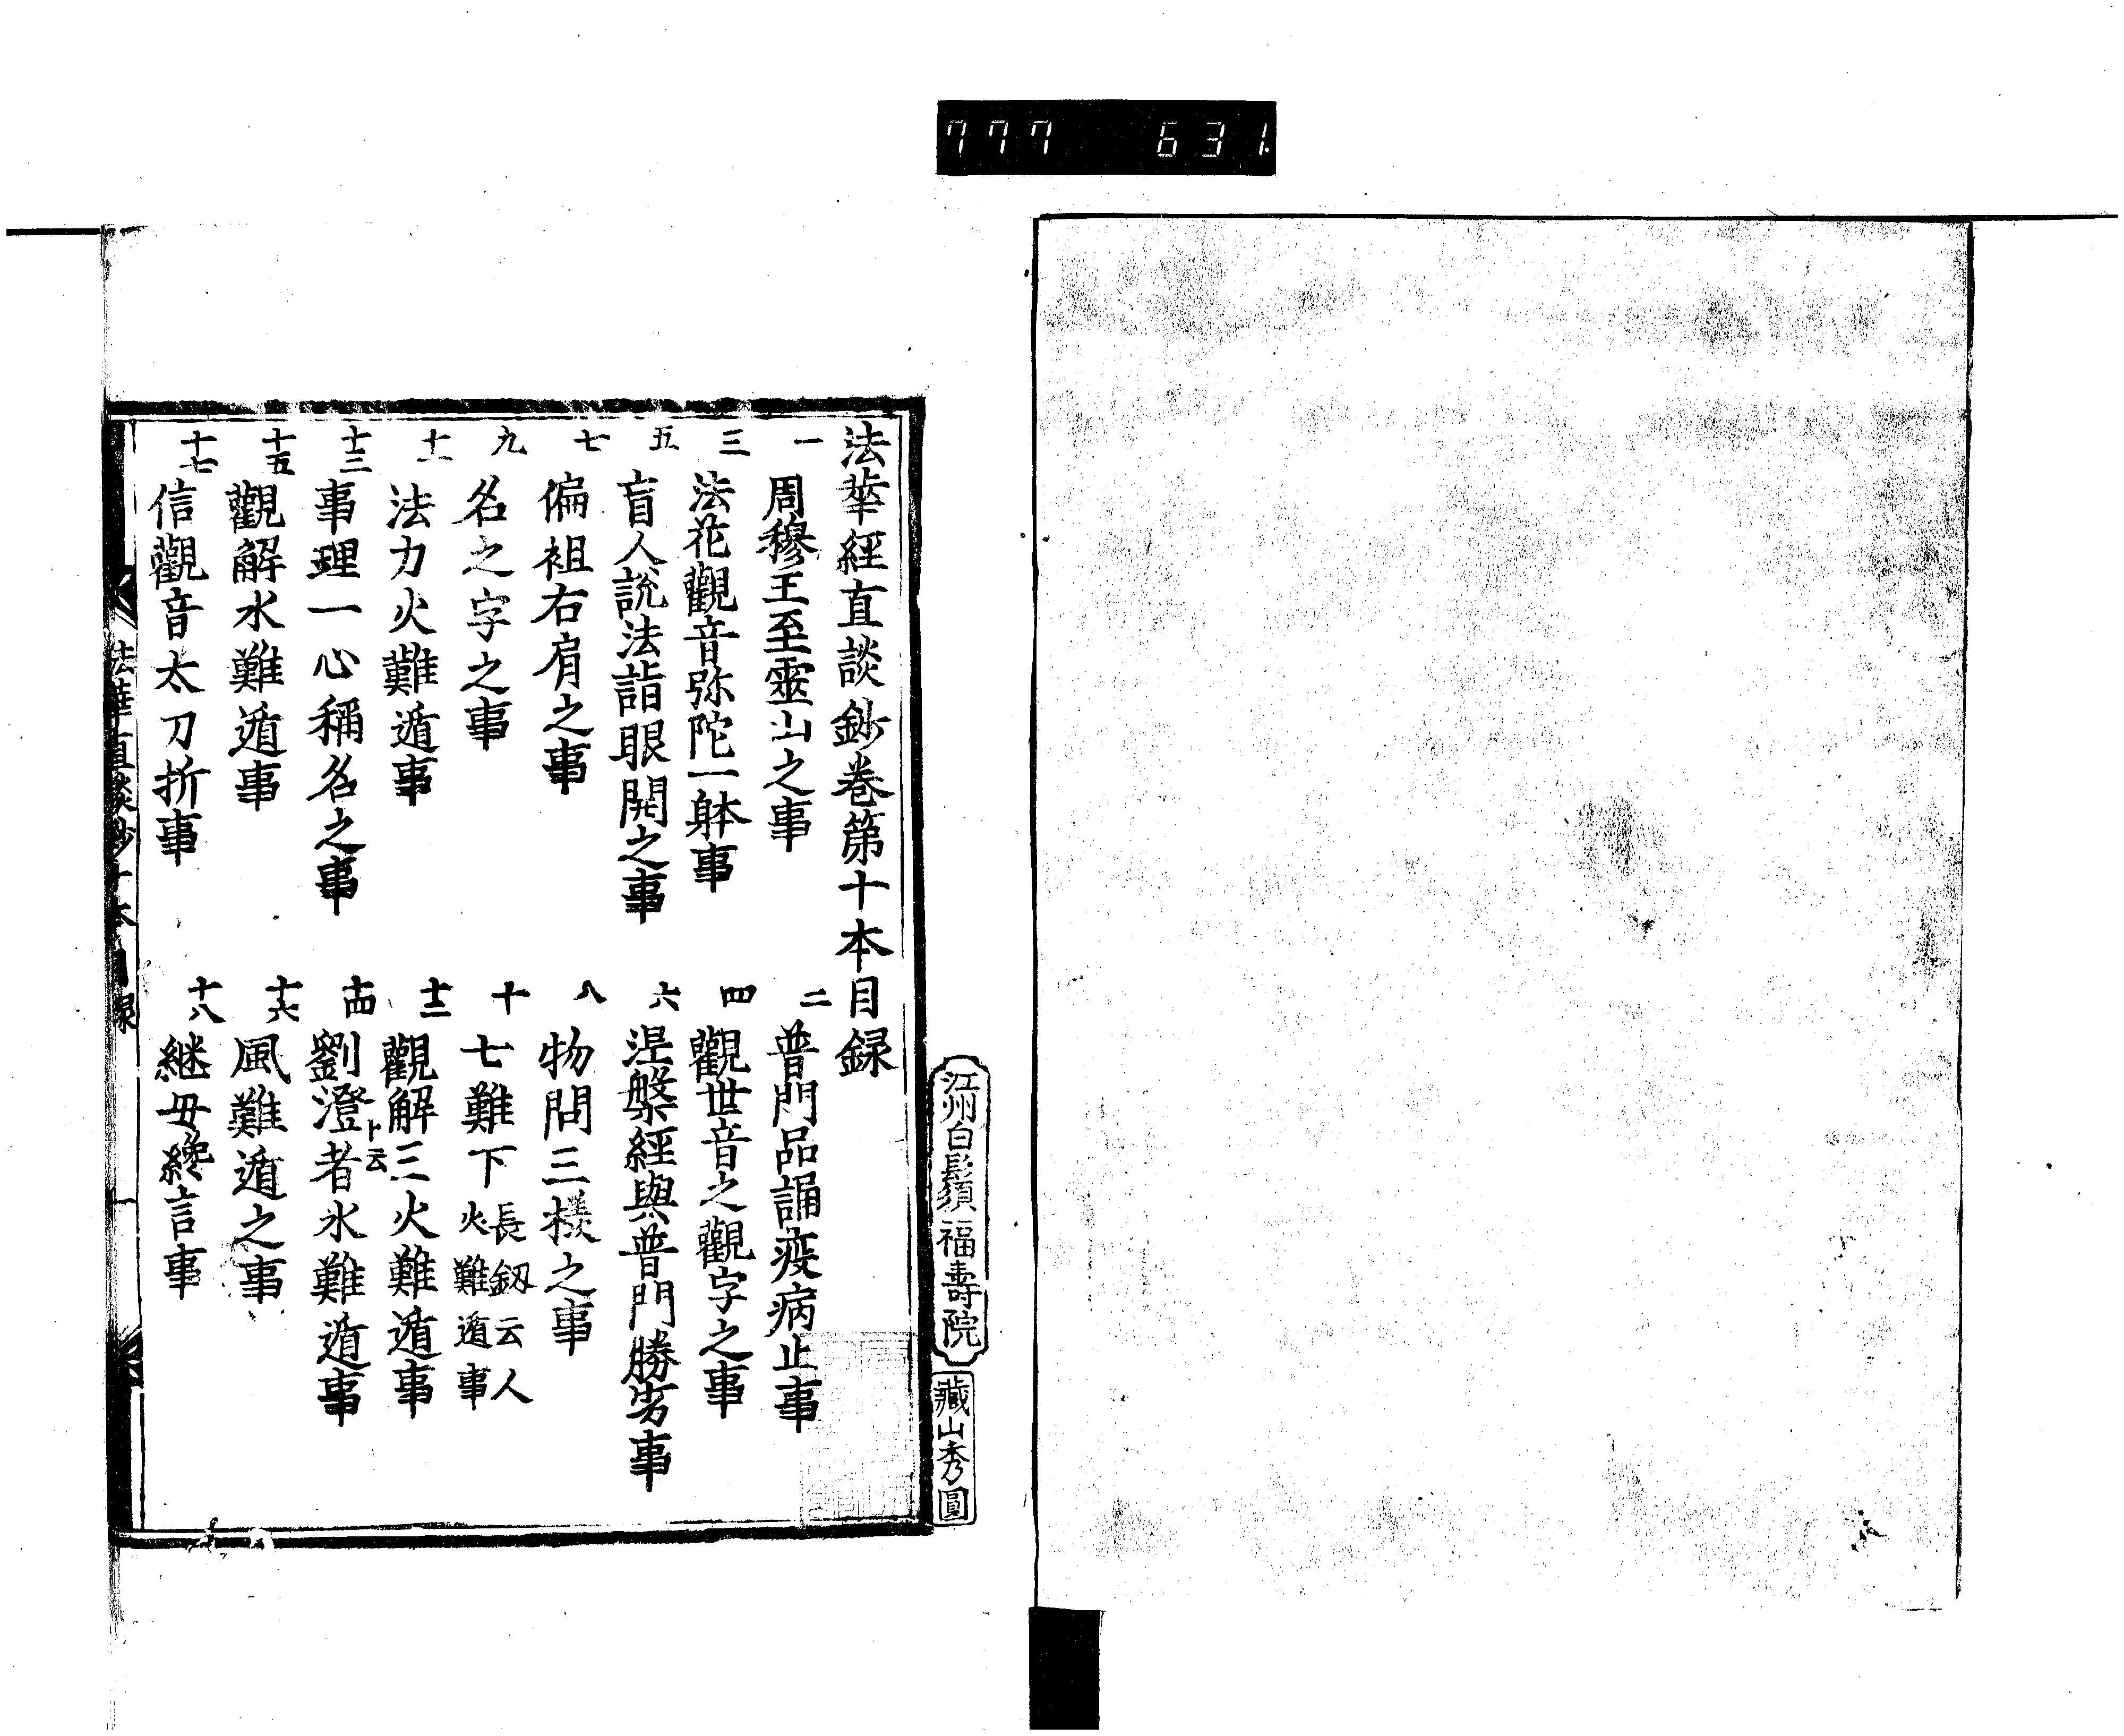 777 631
江州白鬚福壽院
藏山秀圓
法華經直談鈔卷第十本目録
一 周穆王至靈山之事
二 普門品誦疫病止事
三 法花觀音弥陀一躰事
四 觀世音之觀字之事
五 盲人說法詣眼開之事
六 涅槃經與普門勝劣事
七 偏袒右肩之事
八 物問三樣之事
九 名之字之事
十 七難下 長釼云人火難遁事
十一 法力火難遁事
十二 觀解三火難遁事
十三 事理一心稱名之事
十四 劉澄ト云者水難遁事
十五 觀解水難遁事
十六 風難遁之事
十七 信觀音太刀折事
十八 継母纔言事
法華直談鈔十本目録 一